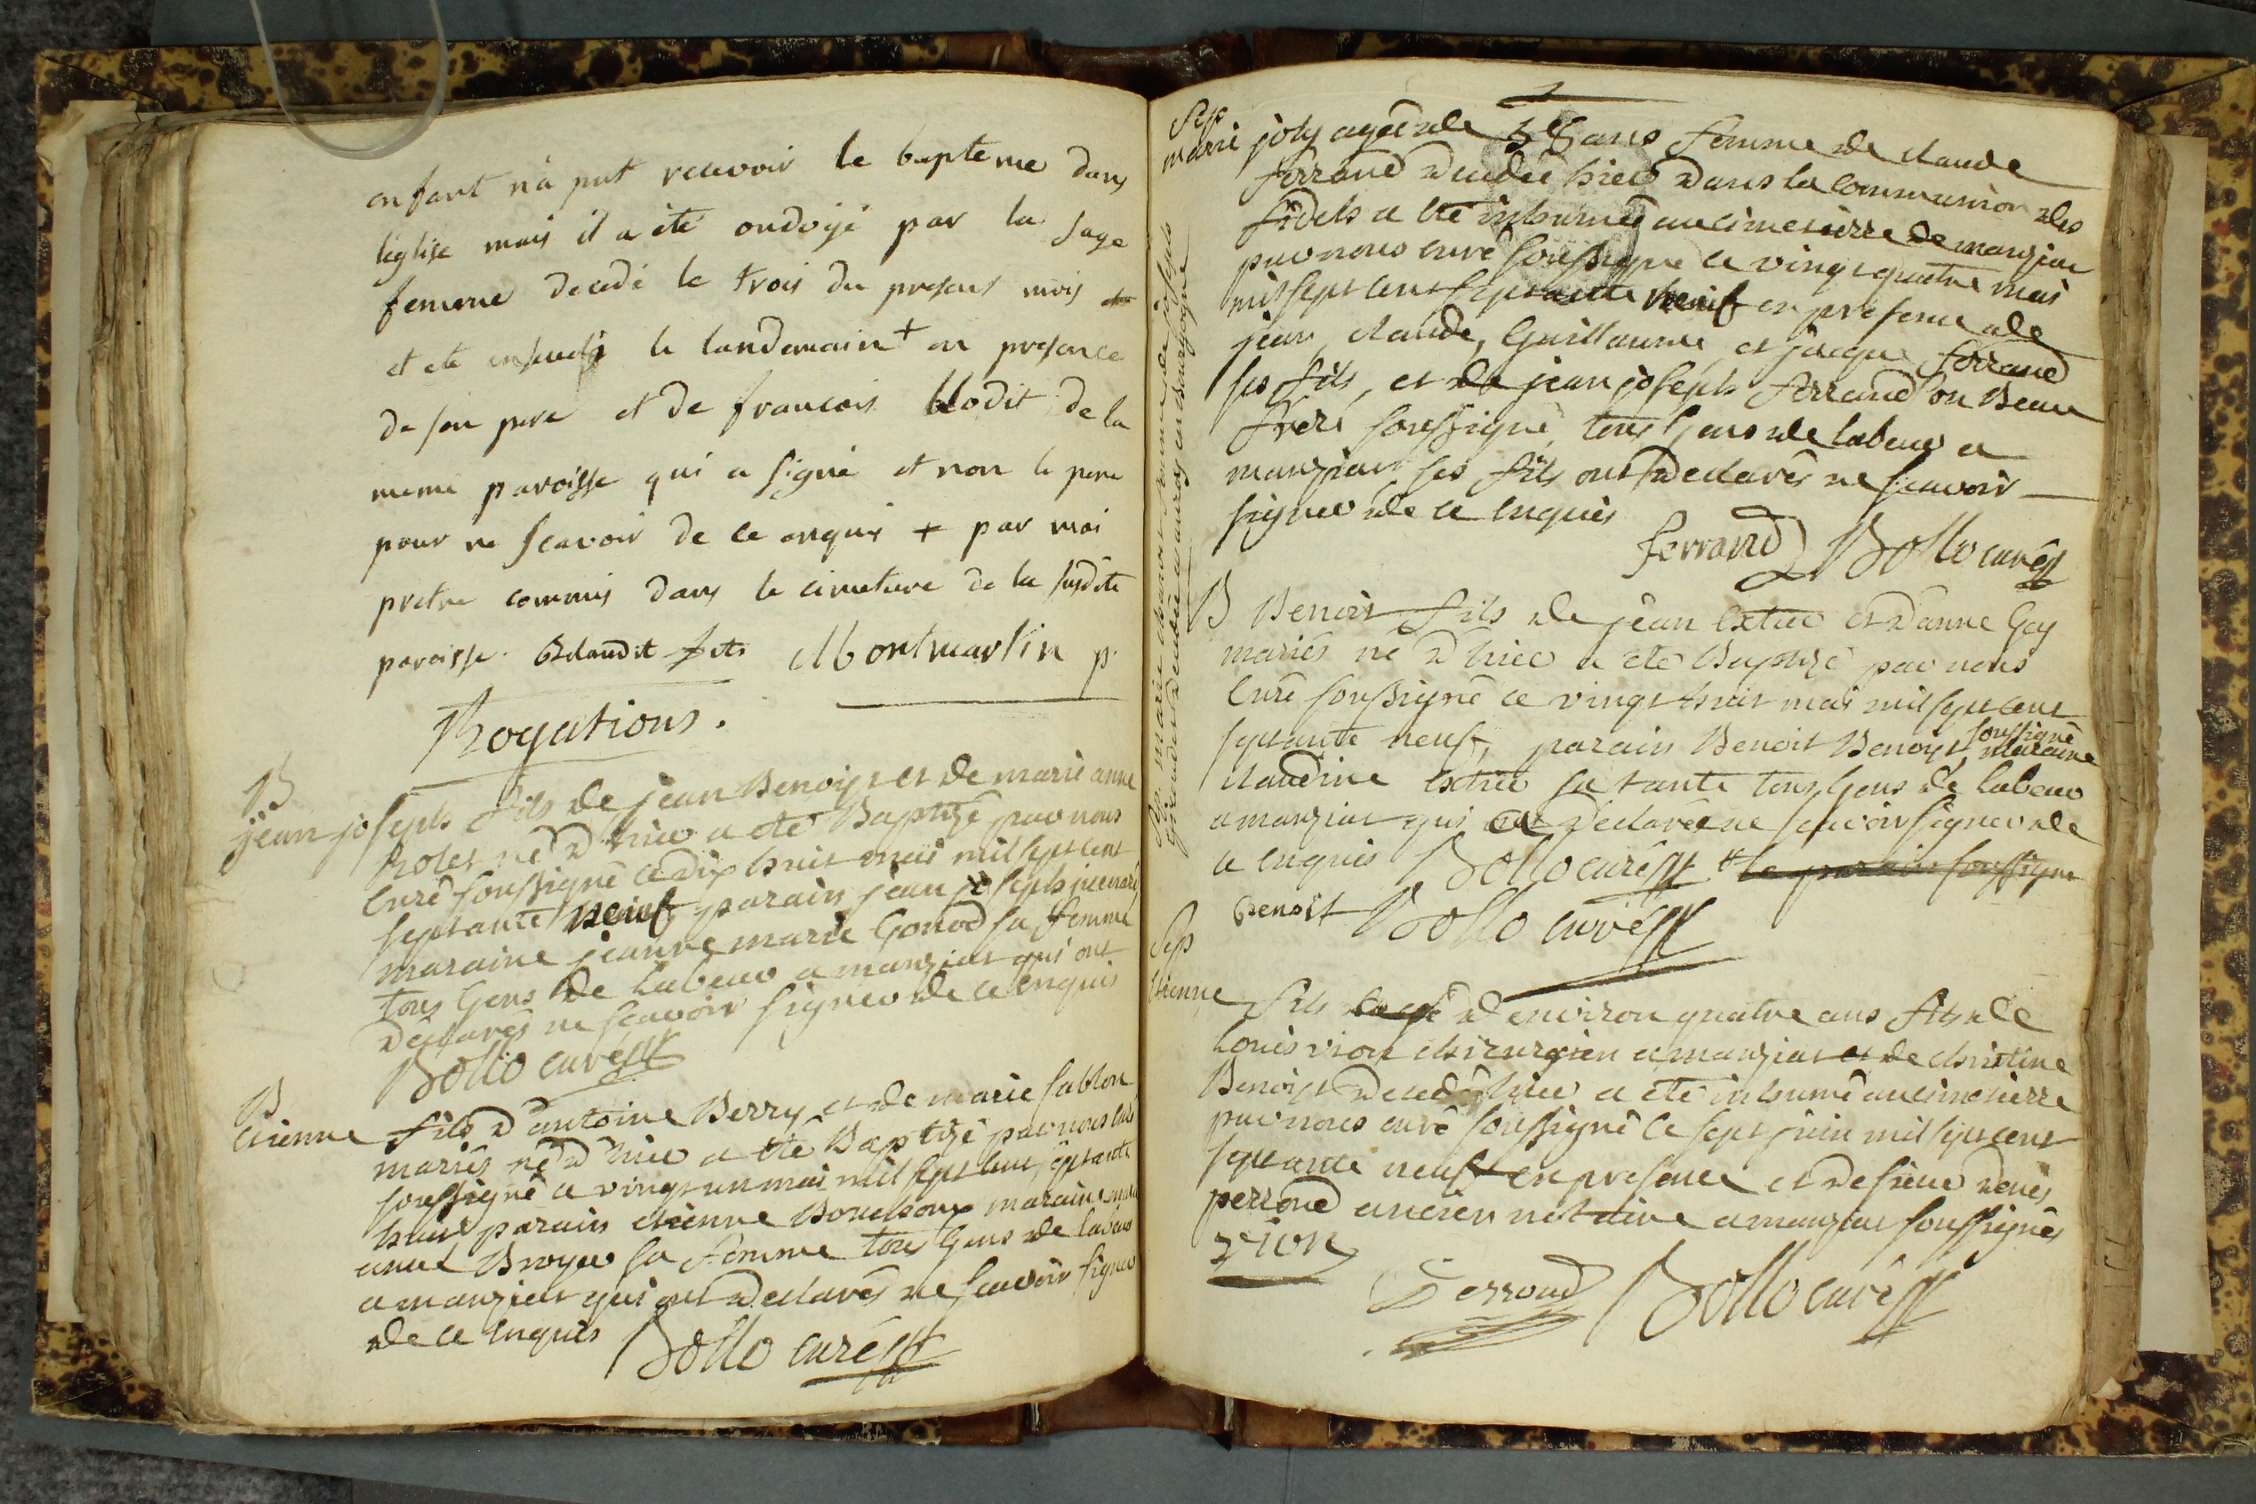 enfant n'a put recevoir le bapteme dans
leglise mais il a été ondoyé par la sage
femme decedé le trois du present mois
et ete enseveli le landemain + en presence
de son pere et de francois blodit de la
meme paroisse qui a signé et non le pere
pour ne scavoir de ce enquis + par moi
pretre commis dans le cimetiere de la susdite
paroisse. Montmartin p.
Rogations.
B
jean joseph fils de jean Benoist et de marie anne
Rolet né d'hier a eté Baptizé par nous
Curé soussigné ce dix huit mai mil sept cent
septante neuf parain jean joseph
maraine jeanne marie Gonod sa femme
tous Gens de Labeur a manziat qui ont
declarés ne scavoir signer de ce enquis
Bollo curé
B
etienne fils d'antoine Berry et de marie sablon
mariés né d'hier a été Baptizé par nous curé
soussigné ce vingt un mai mil sept cent septante
neuf parain etienne Bouchoux maraine
anne Broyer sa femme tous Gens de labeur
a manziat qui ont declarés ne scavoir signer
de ce enquis Bollo curé
Sep
marie joly agée de ans femme de claude
ferrand decedée hier dans la communion des
fidels a été inhumée au cimetierre de manziat
par nous curé soussigné ce vingt quatre mai
mil sept cent septante neuf en presence de
jean, claude, Guillaume et jacque ferrand
ses fils, et de jean joseph ferrand son Beau
frere soussigné, tous Gens de labeur a
manziat ses fils ont declarés ne scavoir
signer de ce enquis
ferrand Bollo curé
B Benoit fils de jean Extier et d'anne Gay
mariés né d'hier a eté Baptizé par nous
Curé soussigné ce vingt huit mai mil sept cent
septante neuf, parain Benoit Benoist soussigné maraine
claudine Extier sa tante tous Gens de labeur
a manziat qui a declarée ne scavoir signer de
ce enquis Bollo curé et le parain soussigné
benoit Bollo curé
Sep
Etienne fils d'environ quatre ans fils de
Louis vion chirurgien a manziat et de christine
Benoist decedé hier a eté inhumé au cimetierre
par nous curé soussigné ce sept juin mil sept cent
septante neuf en presence et de sieur denis
perroud ancien notaire a manziat soussignés
vion
Perroud Bollo curé